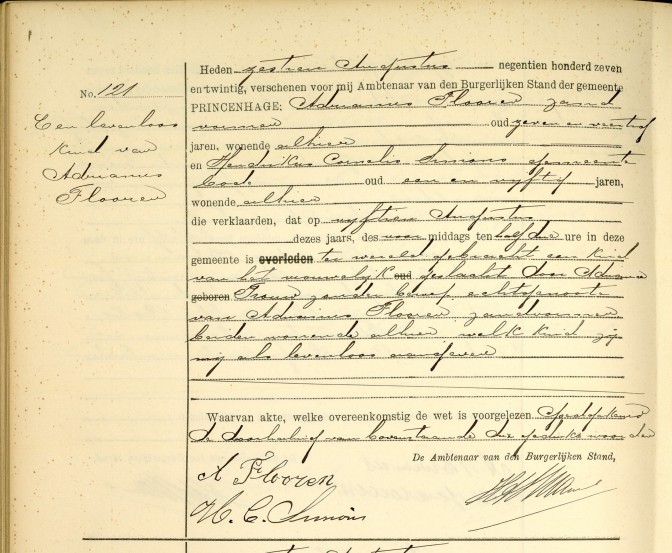 No. 121
Een levenloos
kind van
Adrianus
Flooren
Heden zestien Augustus negentien honderd zeven
en twintig, verschenen voor mij Ambtenaar van den Burgerlijken Stand der gemeente
PRINCENHAGE: Adrianus Flooren zand
voerman oud zeven en veertig
jaren, wonende alhier
en Hendrikus Cornelis Simons gemeente
bode oud een en vijftig jaren,
wonende alhier
die verklaarden, dat op vijftien Augustus
dezes jaars, des voor middags ten half drie ure in deze
gemeente is overleden ter wereld gebracht een kind
van het vrouwelijk oud geslacht door Adriana
geboren zonder beroep echtgenoote
van Adrianus Flooren zandvoerman
beiden wonende alhier welk kind zij
mij als levenloos aangeven
Waarvan akte, welke overeenkomstig de wet is voorgelezen Goedgekeurd
de doorhaling van bovenstaande drie gedrukte woorden
De Ambtenaar van den Burgerlijken Stand,
A Flooren
H. C. Simons